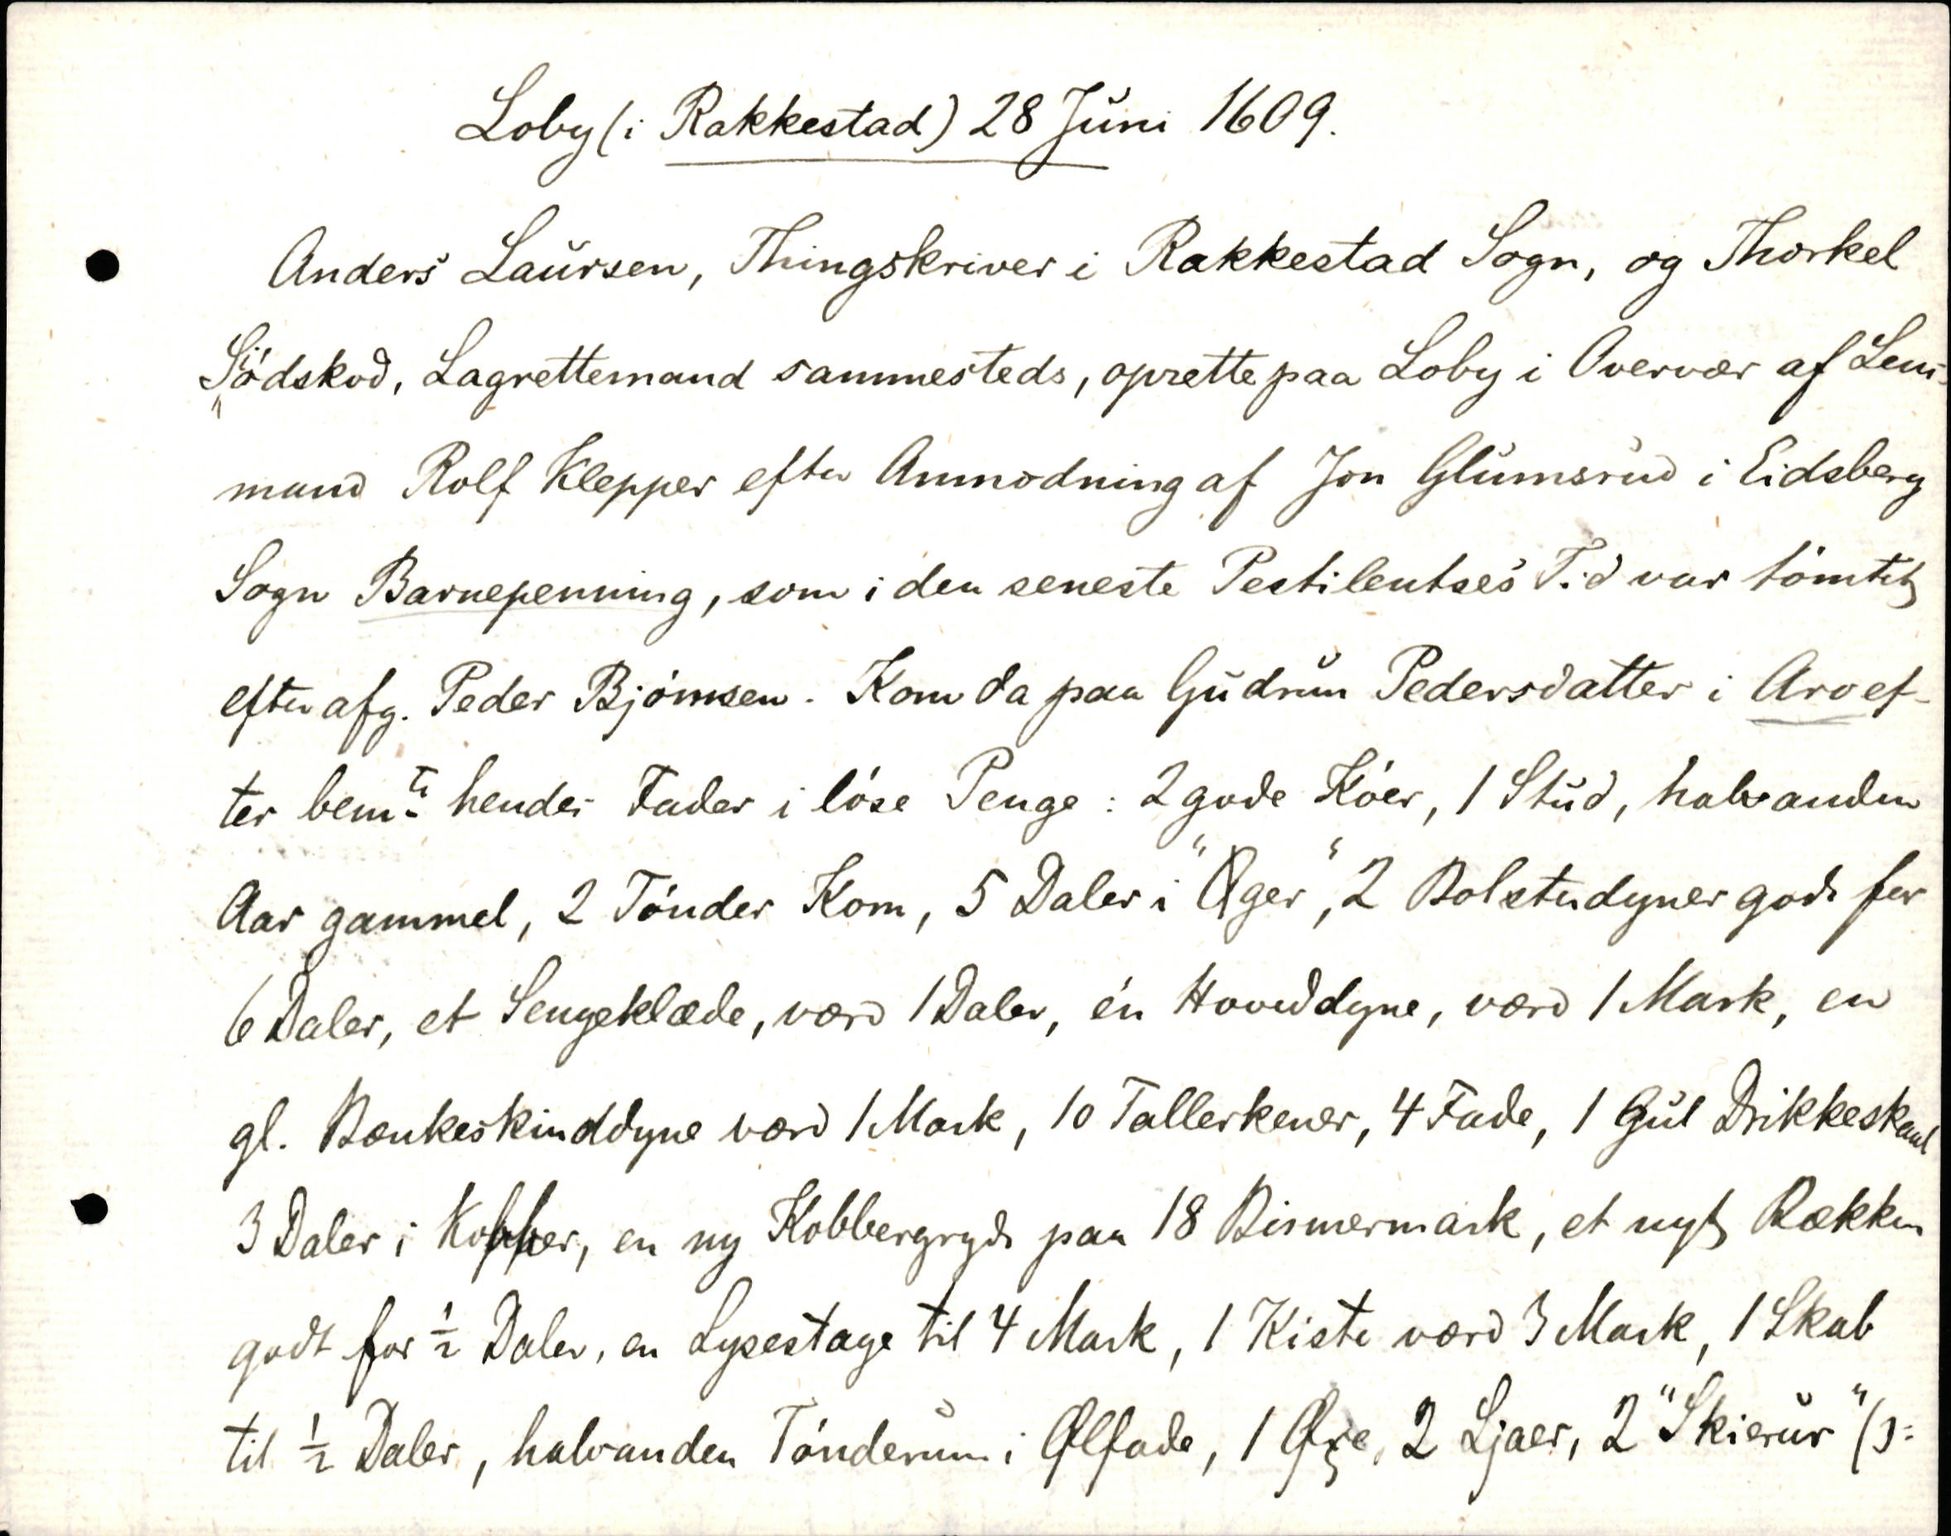 Loby (i Rakkestad) 28 Juni 1609.
Anders Laursen, Thingskriver i Rakkestad Sogn, og Thorkel
Södskod, Lagrettemand sammesteds, oprette paa Loby i Overvær af Lens-
mand Rolf Klepper efter Anmodning af Jon Glumsrud i Eidsberg
Sogn Barnepenning, som i den seneste Pestilentses Tid var tömtet
efter afg. Peder Björnsen. Kom da paa Gudrun Pedersdatter i Arv ef-
ter bemte hendes Fader i löse Penge: 2 gode Köer, 1 Stud, halvanden
Aar gammel, 2 Tönder Korn, 5 Daler i "Øger", 2 Bolsterdyner gode for
6 Daler, et Sengeklæde, værd 1 Daler, én Hoveddyne, værd 1 Mark, en
gl. Bænkeskinddyne værd 1 Mark, 10 Tallerkener, 4 Fade, 1 Gul Drikkeskaal
3 Daler i Kobber, en ny Kobbergryde paa 18 Bismermark, et nyt Bækken
godt for ½ Daler, en Lysestage til 4 Mark, 1 Kiste værd 3 Mark, 1 Skab
til ½ Daler, halvanden Tönderum i Ølfade, 1 Øxe, 2 Ljaer, 2 "Skierur" (ɔ: